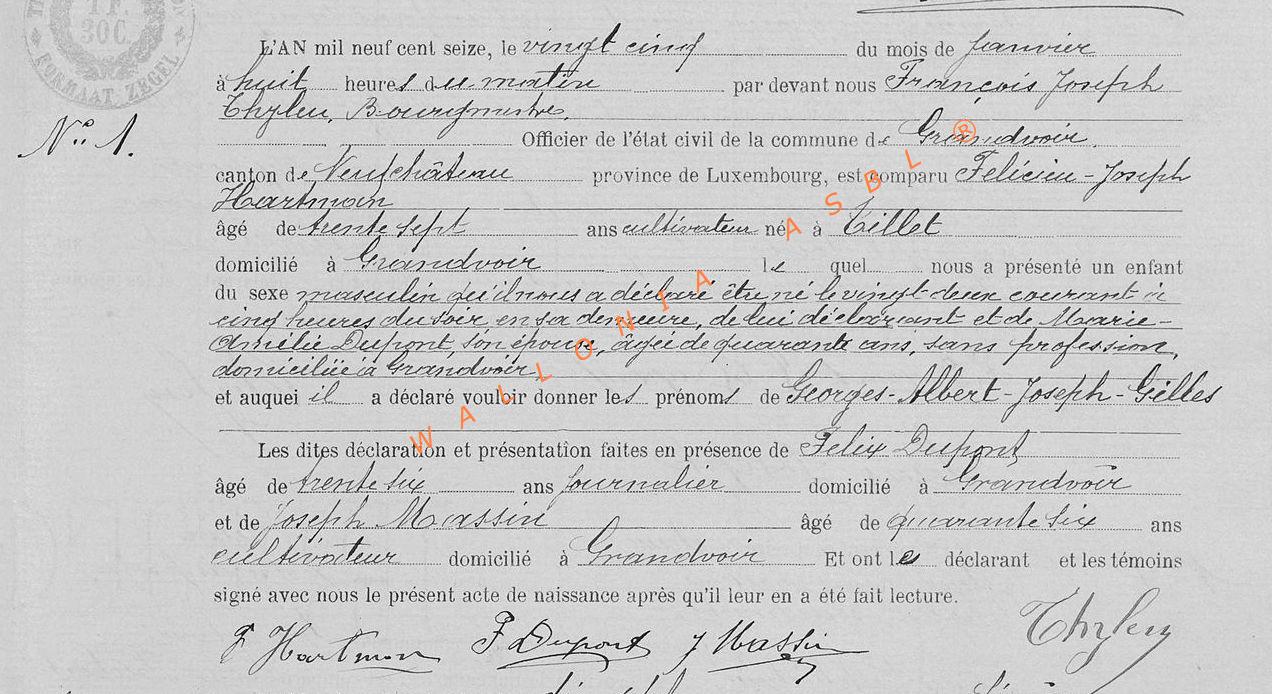 1 F.
30C.
FORMAAT ZEGEL
L'AN mil neuf cent seize, le vingt cinq du mois de Janvier
à huit heures du matin par devant nous François Joseph
Thyleu, Bourgmestre,
N° 1.
Officier de l'état civil de la commune de Grandvoir,
canton de Neufchâteau province de Luxembourg, est comparu Félicien-Joseph
Hartman
âgé de trente sept ans cultivateur né à Tillet
domicilié à Grandvoir lequel nous a présenté un enfant
du sexe masculin qu'il nous a déclaré être né le vingt-deux courant à
cinq heures du soir, en sa demeure, de lui déclarant et de Marie-
Amélie Dupont, son épouse, âgée de quarante ans, sans profession,
domiciliée à Grandvoir,
et auquel il a déclaré vouloir donner les prénoms de Georges-Albert-Joseph-Gilles
Les dites déclaration et présentation faites en présence de Felix Dupont
âgé de trente six ans journalier domicilié à Grandvoir
et de Joseph Massin âgé de quarante six ans
cultivateur domicilié à Grandvoir Et ont le déclarant et les témoins
signé avec nous le présent acte de naissance après qu'il leur en a été fait lecture.
F Hartman F Dupont J Massin Thyleu
WALLONIA ASBL ®